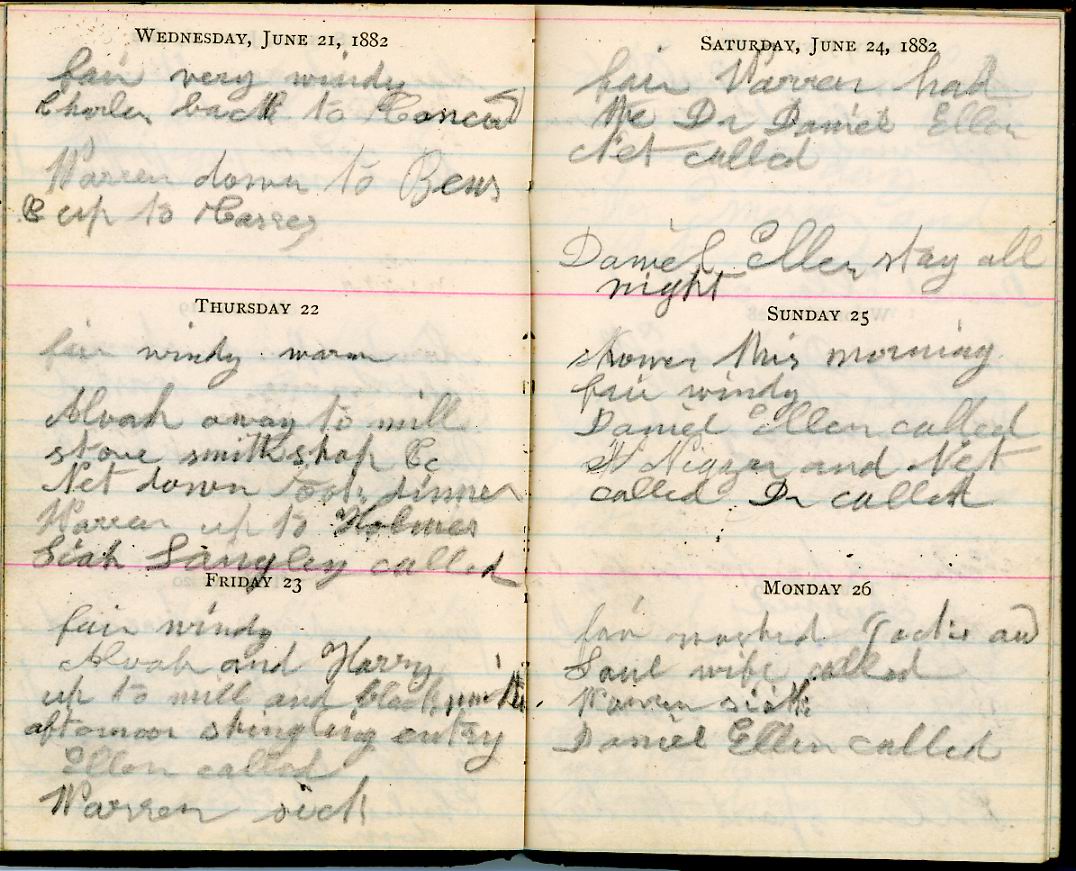 WEDNESDAY, JUNE 21, 1882
fair very windy
Charles back to Concord
Warren down to Bens
& up to
THURSDAY 22
fair windy warm
Alvah away to mill
stove smithshop &c
Net down to dinner
Warren up to Holmes
Siah Langley called
FRIDAY 23
fair windy
Alvah and Harry
up to mill and blacksmith
afternoon shingling entry
Ellen called
Warren sick
SATURDAY, JUNE 24, 1882
fair Warren had
the Dr Daniel Ellen
Net called
Daniel Ellen stay all
night
SUNDAY 25
shower this morning
fair windy
Daniel Ellen called
and Net
called Dr called
MONDAY 26
fair washed and
wife called
Warren sick
Daniel Ellen called